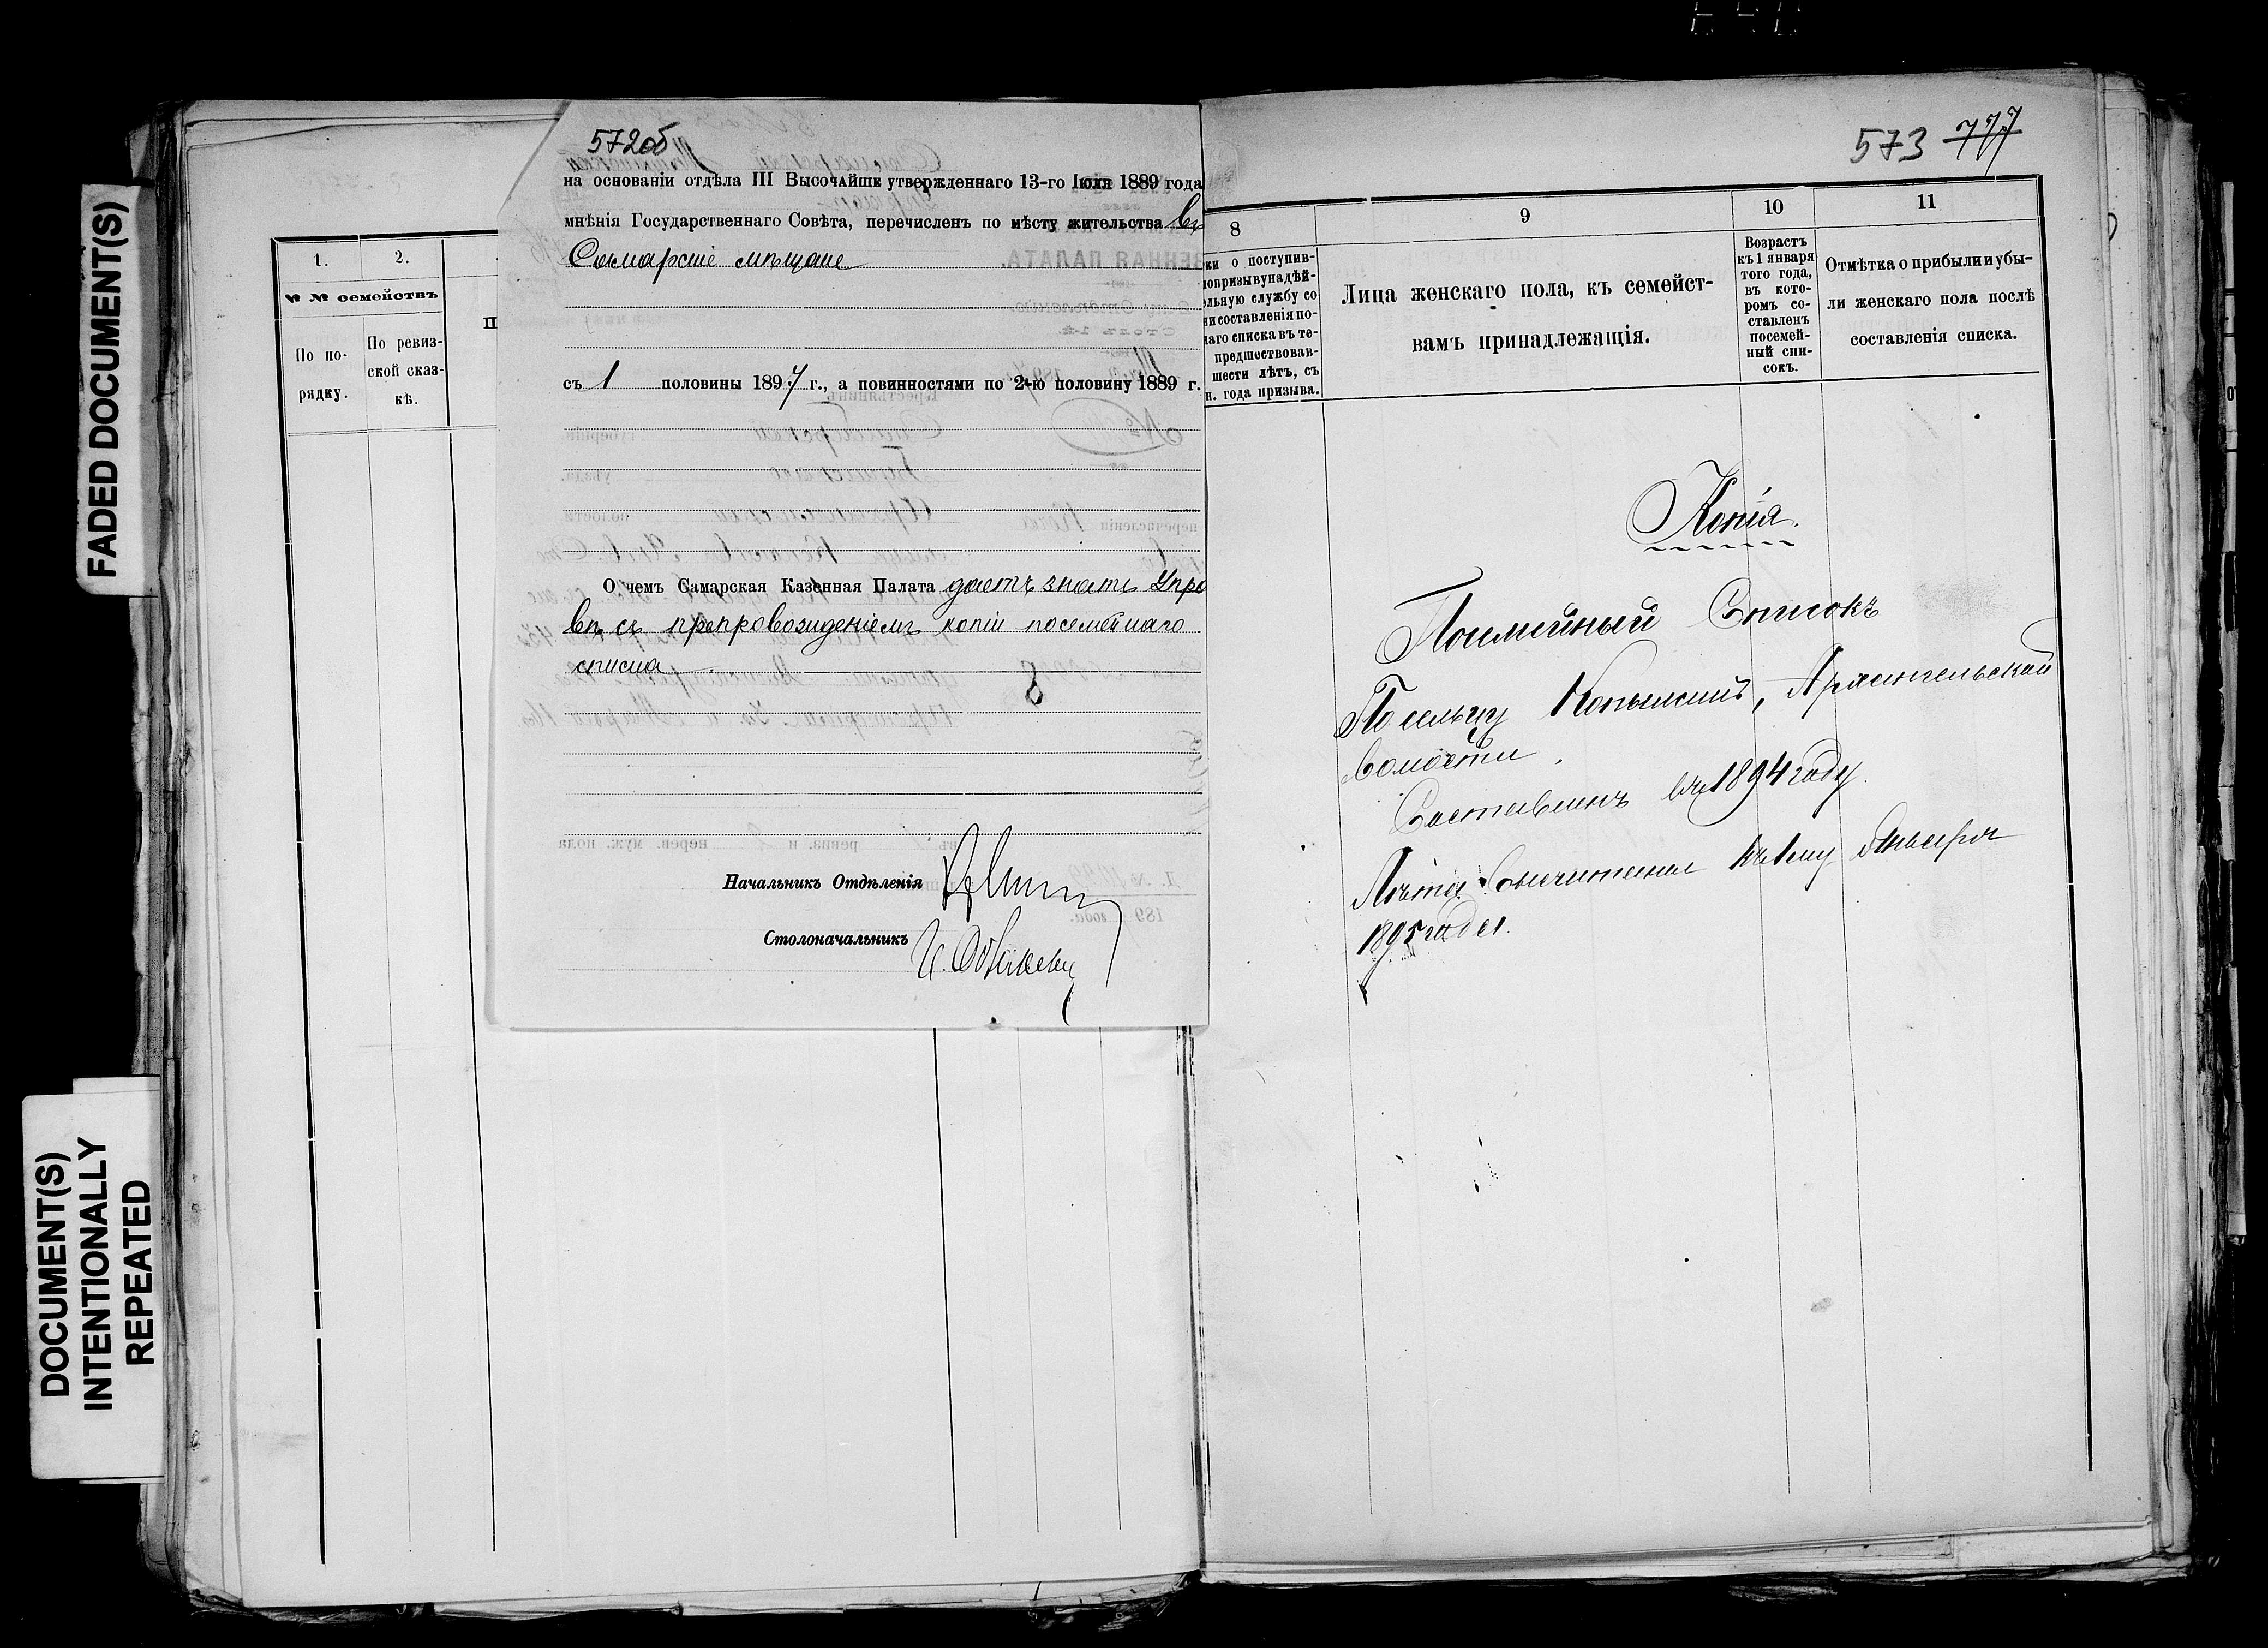 FADED DOCUMENT(S)
DOCUMENT(S)
INTENTIONALLY
REPEATED
1.
2.
№ № семействъ
По по-
рядку.
По ревиз-
ской сказ-
кѣ.
572об
на основаніи отдѣла III Высочайше утвержденнаго 13-го Іюля 1889 года
мнѣнія Государственнаго Совѣта, перечисленъ по мѣсту жительства въ
Самарскіе мѣщане
съ 1 половины 1897 г., а повинностями по 2-ю половину 1889 г.
О чемъ Самарская Казенная Палата даетъ знать Упра
вѣ, съ препровожденіемъ копіи посемейнаго
списка
8
Начальникъ Отдѣленія
Столоначальникъ
573 777
8
ки о поступив-
попризывунадѣй-
ельную службу со
ни составленія по-
наго списка въ те-
предшествовав-
шести лѣтъ, съ
н. года призыва.
9
Лица женскаго пола, къ семейст-
вамъ принадлежащія.
10
Возрастъ
къ 1 января
того года,
въ кото-
ромъ со-
ставленъ
посемей-
ный спи-
сокъ.
11
Отмѣтка о прибыли и убы-
ли женскаго пола послѣ
составленія списка.
Копія.
Посемейный Списокъ
По сельцу Архангельской
волости
Составленъ въ 1894 году.
Лѣта къ 1му Января
1895 года.